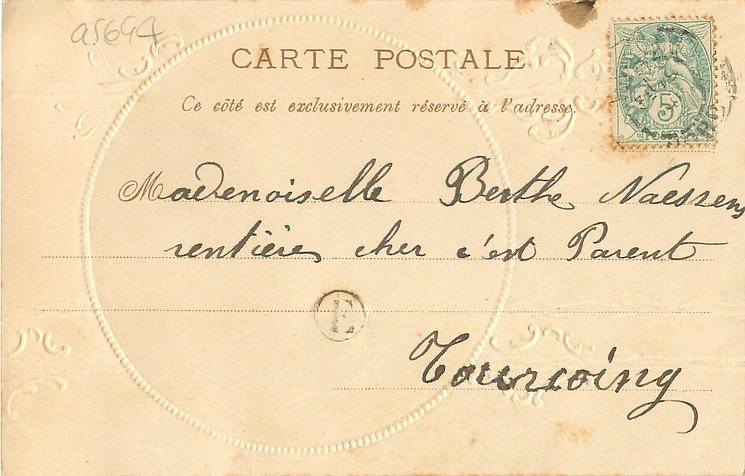 a5694
CARTE POSTALE
Ce côté est exclusivement réservé à l'adresse.
5
Mademoiselle Berthe Naessens
rentière cher c'est Parent
E
Tourcoing